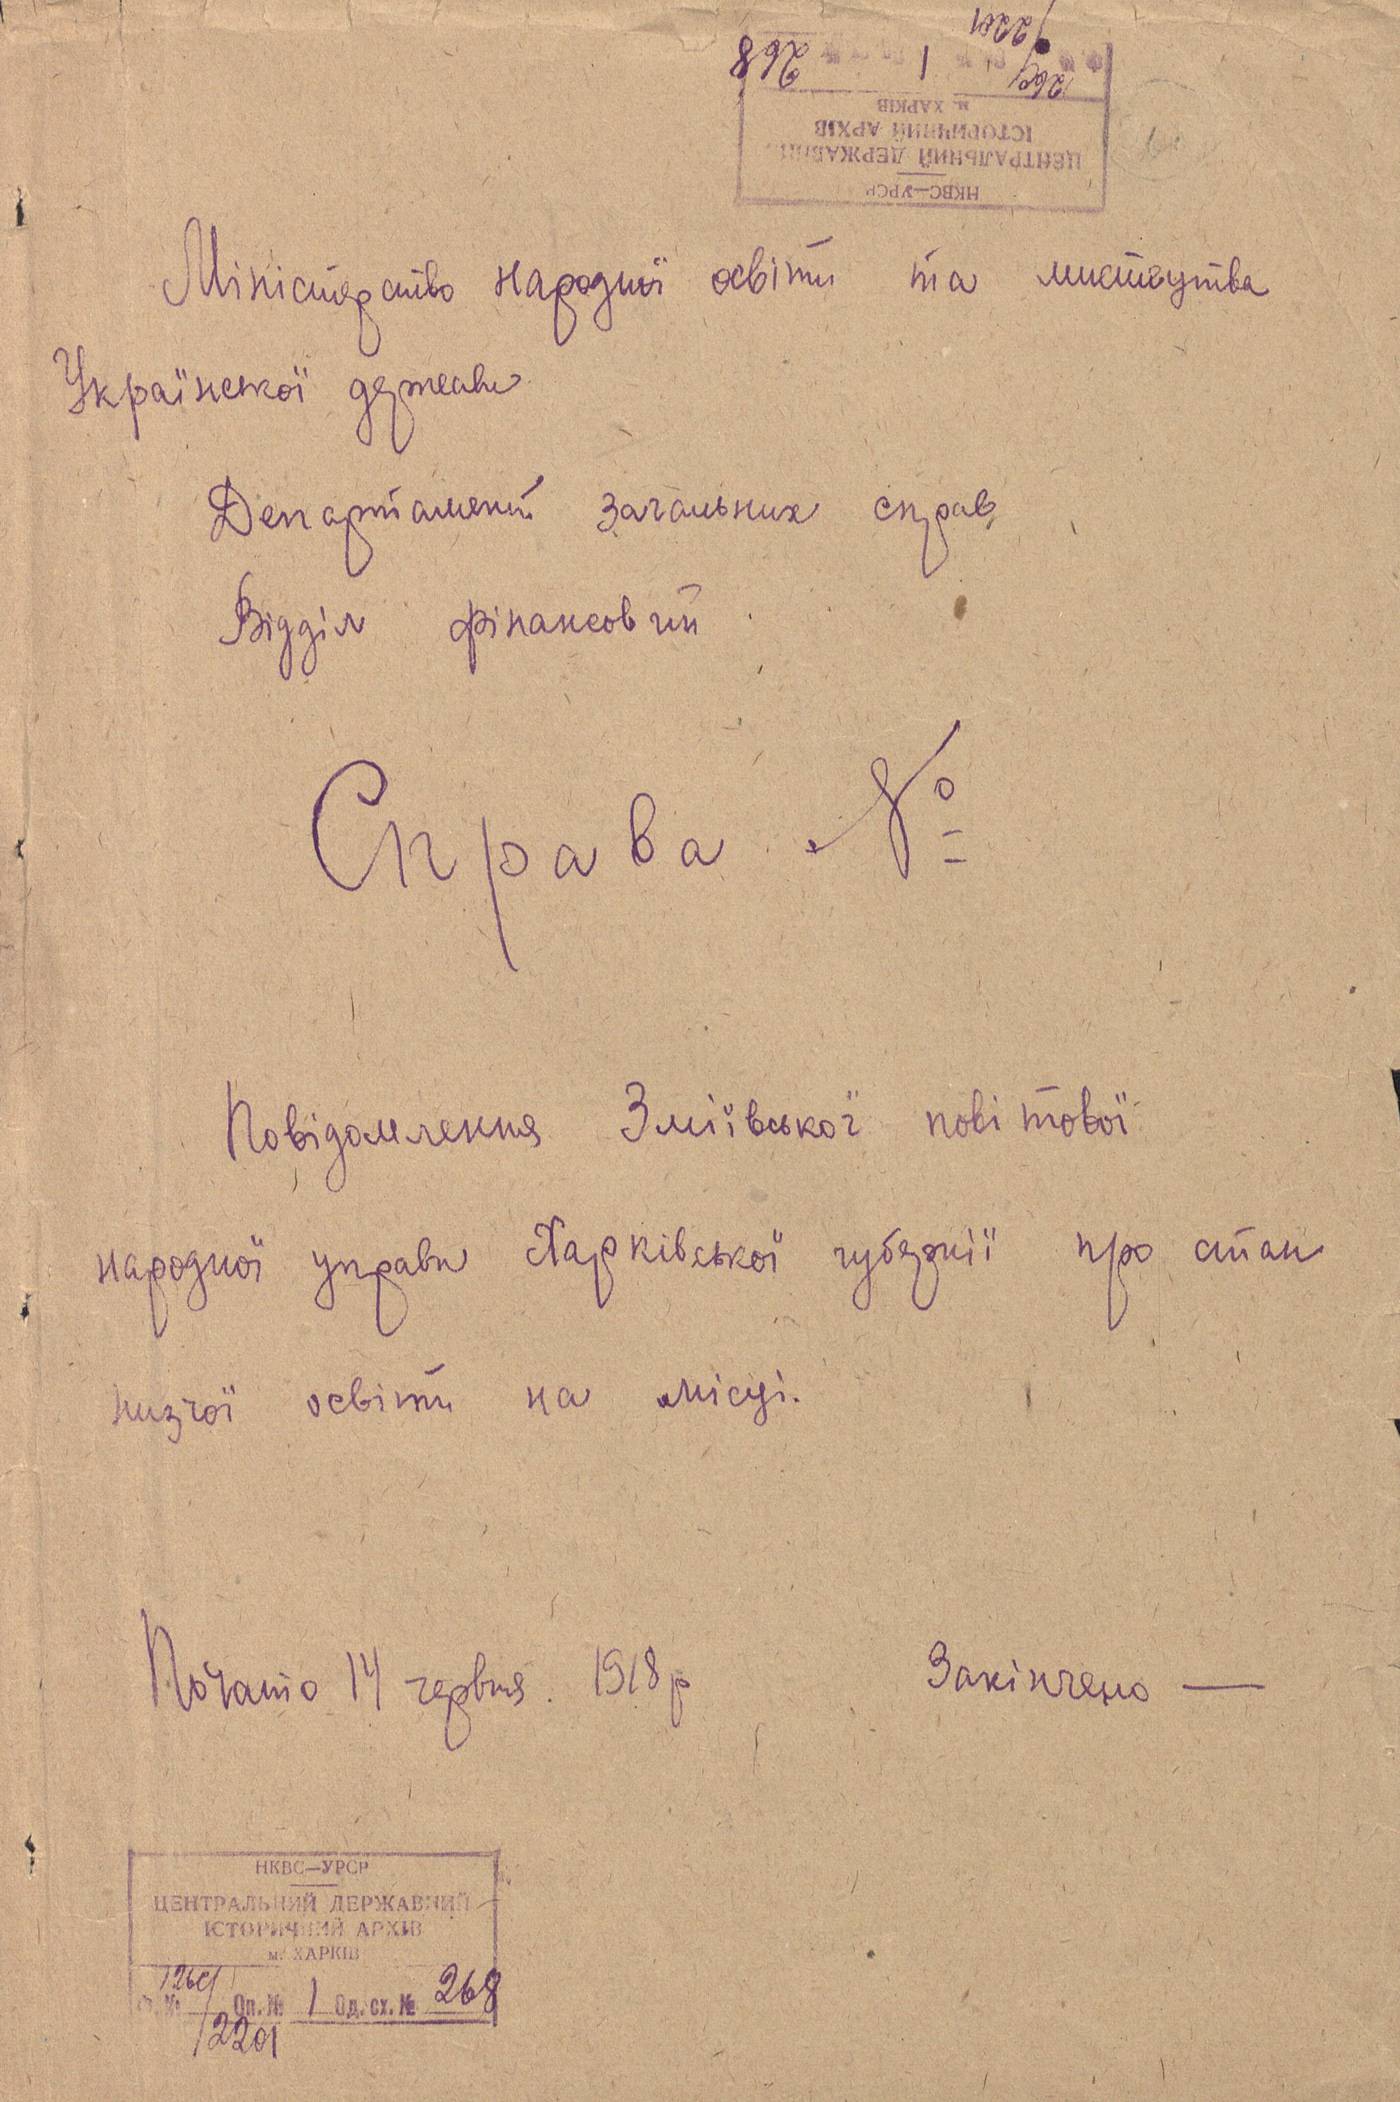 НКВС—УРСР
ЦЕНТРАЛЬНИЙ ДЕРЖАВНИЙ
ІСТОРИЧНИЙ АРХІВ
м. ХАРКІВ
1 268
2201
Міністерство народної освіти та мистецтва
Української держави
Департамент загальних справ
Відділ фінансовий
Справа №
Повідомлення Зміївської повітової
народної управи Харківської губернії про стан
низчої освіти на місці.
Почато 14 червня 1918 р Закінчено —
НКВС—УРСР
ЦЕНТРАЛЬНИЙ ДЕРЖАВНИЙ
ІСТОРИЧНИЙ АРХІВ
м. ХАРКІВ
Ф. № Оп. № 1 Од. сх. № 268
2201